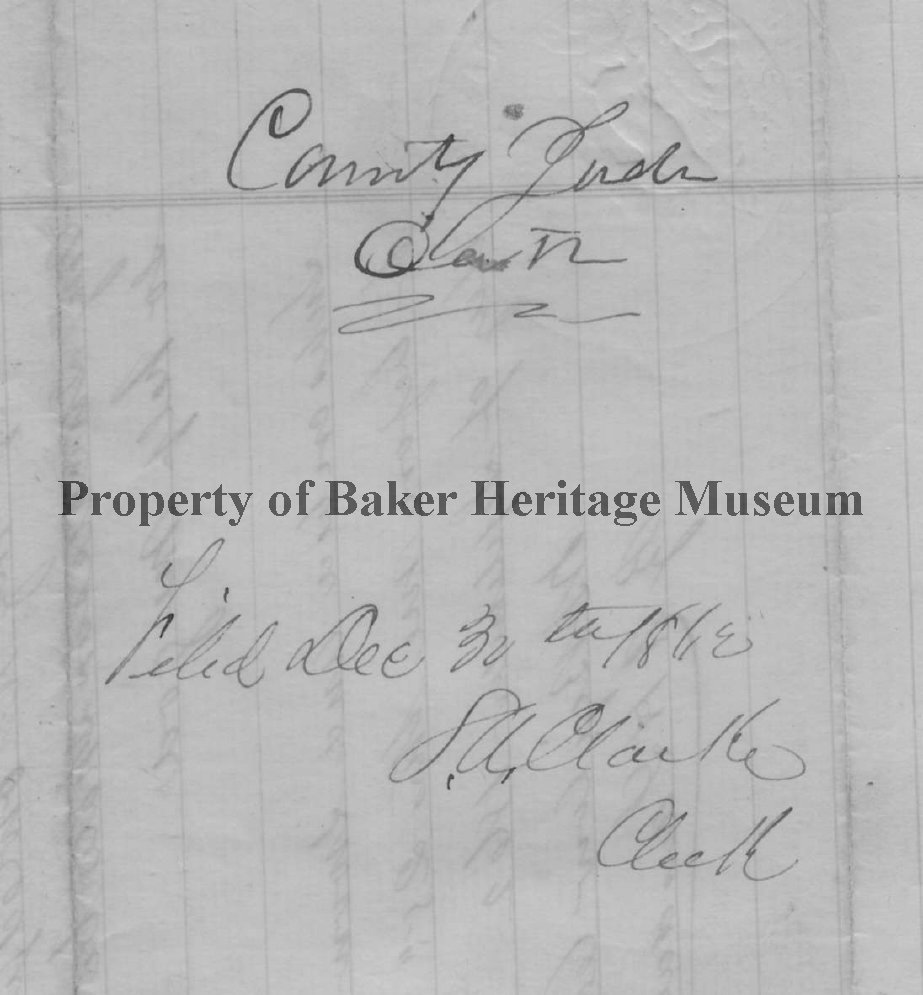 County Judge
Oath
Property of Baker Heritage Museum
Filed Dec 30th
S. A. Clarke
Clerk